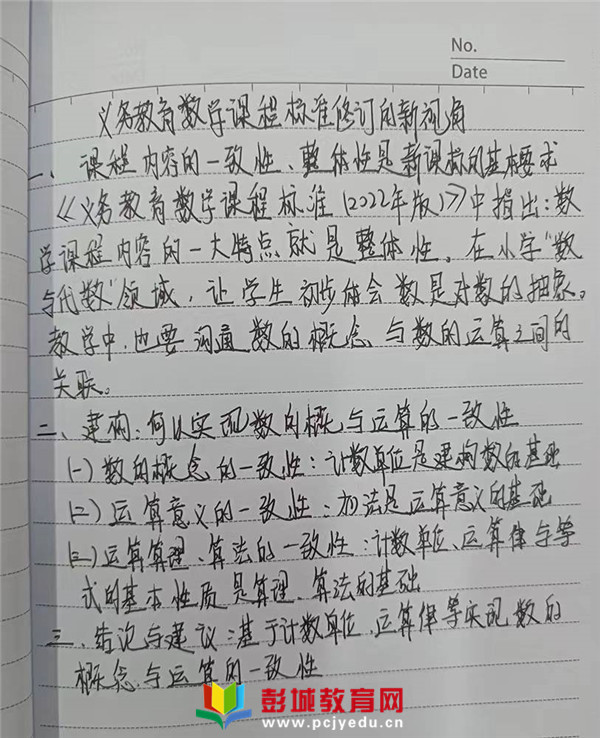 No.
Date
义务教育数学课程标准修订的新视角
一、课程内容的一致性、整体性是新课标的基本要求
《义务教育数学课程标准(2022年版)》中指出:数
学课程内容的一大特点就是整体性。在小学"数
与代数"领域,让学生初步体会数是对数的抽象。
教学中,也要沟通数的概念与数的运算之间的
关联。
二、建构:何以实现数的概念与运算的一致性
(一)数的概念的一致性:计数单位是建构数的基础
(二)运算意义的一致性:加法是运算意义的基础
(三)运算算理、算法的一致性:计数单位、运算律与等
式的基本性质是算理、算法的基础
三、结论与建议:基于计数单位、运算律等实现数的
概念与运算的一致性
彭城教育网
www.pcjyedu.cn